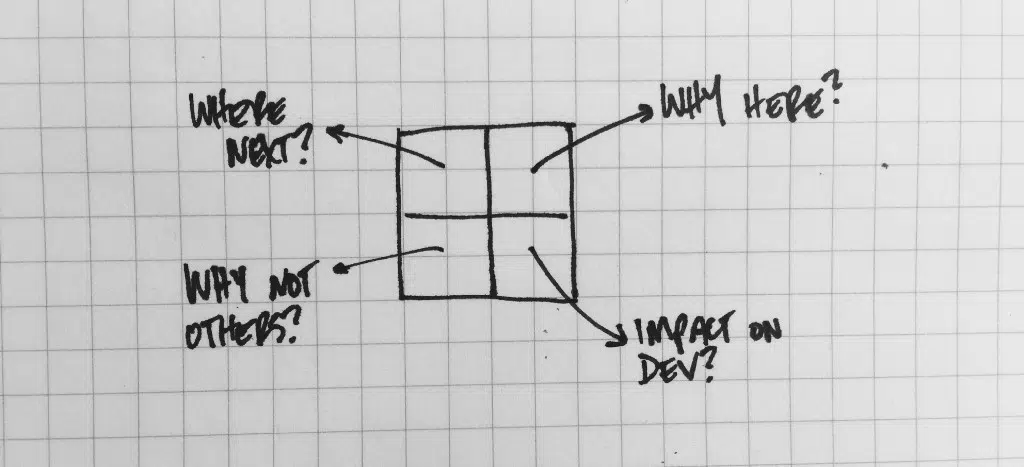 WHERE
NEXT?
WHY HERE?
WHY NOT
OTHERS?
IMPACT ON
DEV?